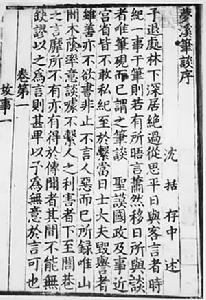 夢溪筆談序
沈括存中述
予退處林下深居絶過從思平日與客言者時
紀一事于筆則若有所晤言蕭然移日所與談
者唯筆硯而已謂之筆談 聖謨國政及事近
宮省皆不敢私紀至於繫當日士大夫毀譽者
雖善亦不欲書非止不言人惡而已所録唯山
間木蔭率意談噱不繫人之利害者下至閭巷
之言靡所不有亦有得於傳聞者其間不能無
缺謬以之為言則甚卑以予為無意於言可也
卷第一
故事一